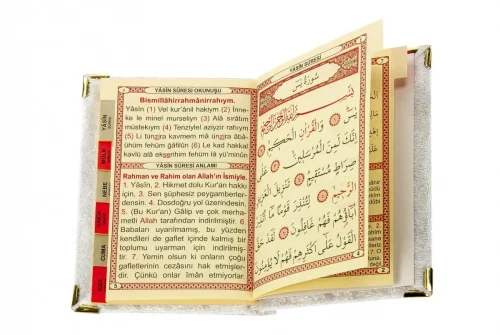 YÂSİN SÛRESİ OKUNUŞU
Bismillâhirrahmânirrahıym.
Yâsîn (1) Vel kur'ânil hakiym (2) İnne-
ke le minel murseliyn (3) Alâ sırâtım
müstekıym (4) Tenziylel aziyzir rahıym
(5) Li tünzira kavmem mâ ünzira âbâü-
hüm fehüm ğâfilûn (6) Le kad hakkal
kavlü alâ ekserihim fehüm lâ yü'minûn
YÂSÎN SÛRESİ ANLAMI
Rahman ve Rahim olan Allah'ın İsmiyle.
1. Yâsîn, 2. Hikmet dolu Kur'an hakkı
için, 3. Sen şüphesiz peygamberler-
densin. 4. Dosdoğru yol üzerindesin.
5. (Bu Kur'an) Gâlip ve çok merha-
metli Allah tarafından indirilmiştir. 6.
Babaları uyarılmamış, bu yüzden
kendileri de gaflet içinde kalmış bir
toplumu uyarman için indirilmiş-
tir. 7. Yemin olsun ki onların çoğu
gafletlerinin cezasını hak etmişler-
dir. Çünkü onlar îman etmiyorlar
5
YÂSİN
MÜLK
NEBE
CUMA
KISA
YÂSİN SÛRESİ
سُورَةُ يٰسٓ
بِسْمِ اللّٰهِ الرَّحْمٰنِ الرَّحِيمِ
يٰسٓ وَالْقُرْاٰنِ الْحَكِيمِ
اِنَّكَ لَمِنَ الْمُرْسَلِينَ عَلٰى
صِرَاطٍ مُسْتَقِيمٍ تَنْزِيلَ الْعَزِيزِ
الرَّحِيمِ لِتُنْذِرَ قَوْمًا مَٓا اُنْذِرَ
اٰبَٓاؤُ۬هُمْ فَهُمْ غَافِلُونَ لَقَدْ حَقَّ
الْقَوْلُ عَلٰٓى اَكْثَرِهِمْ فَهُمْ لَا يُؤْمِنُونَ
4